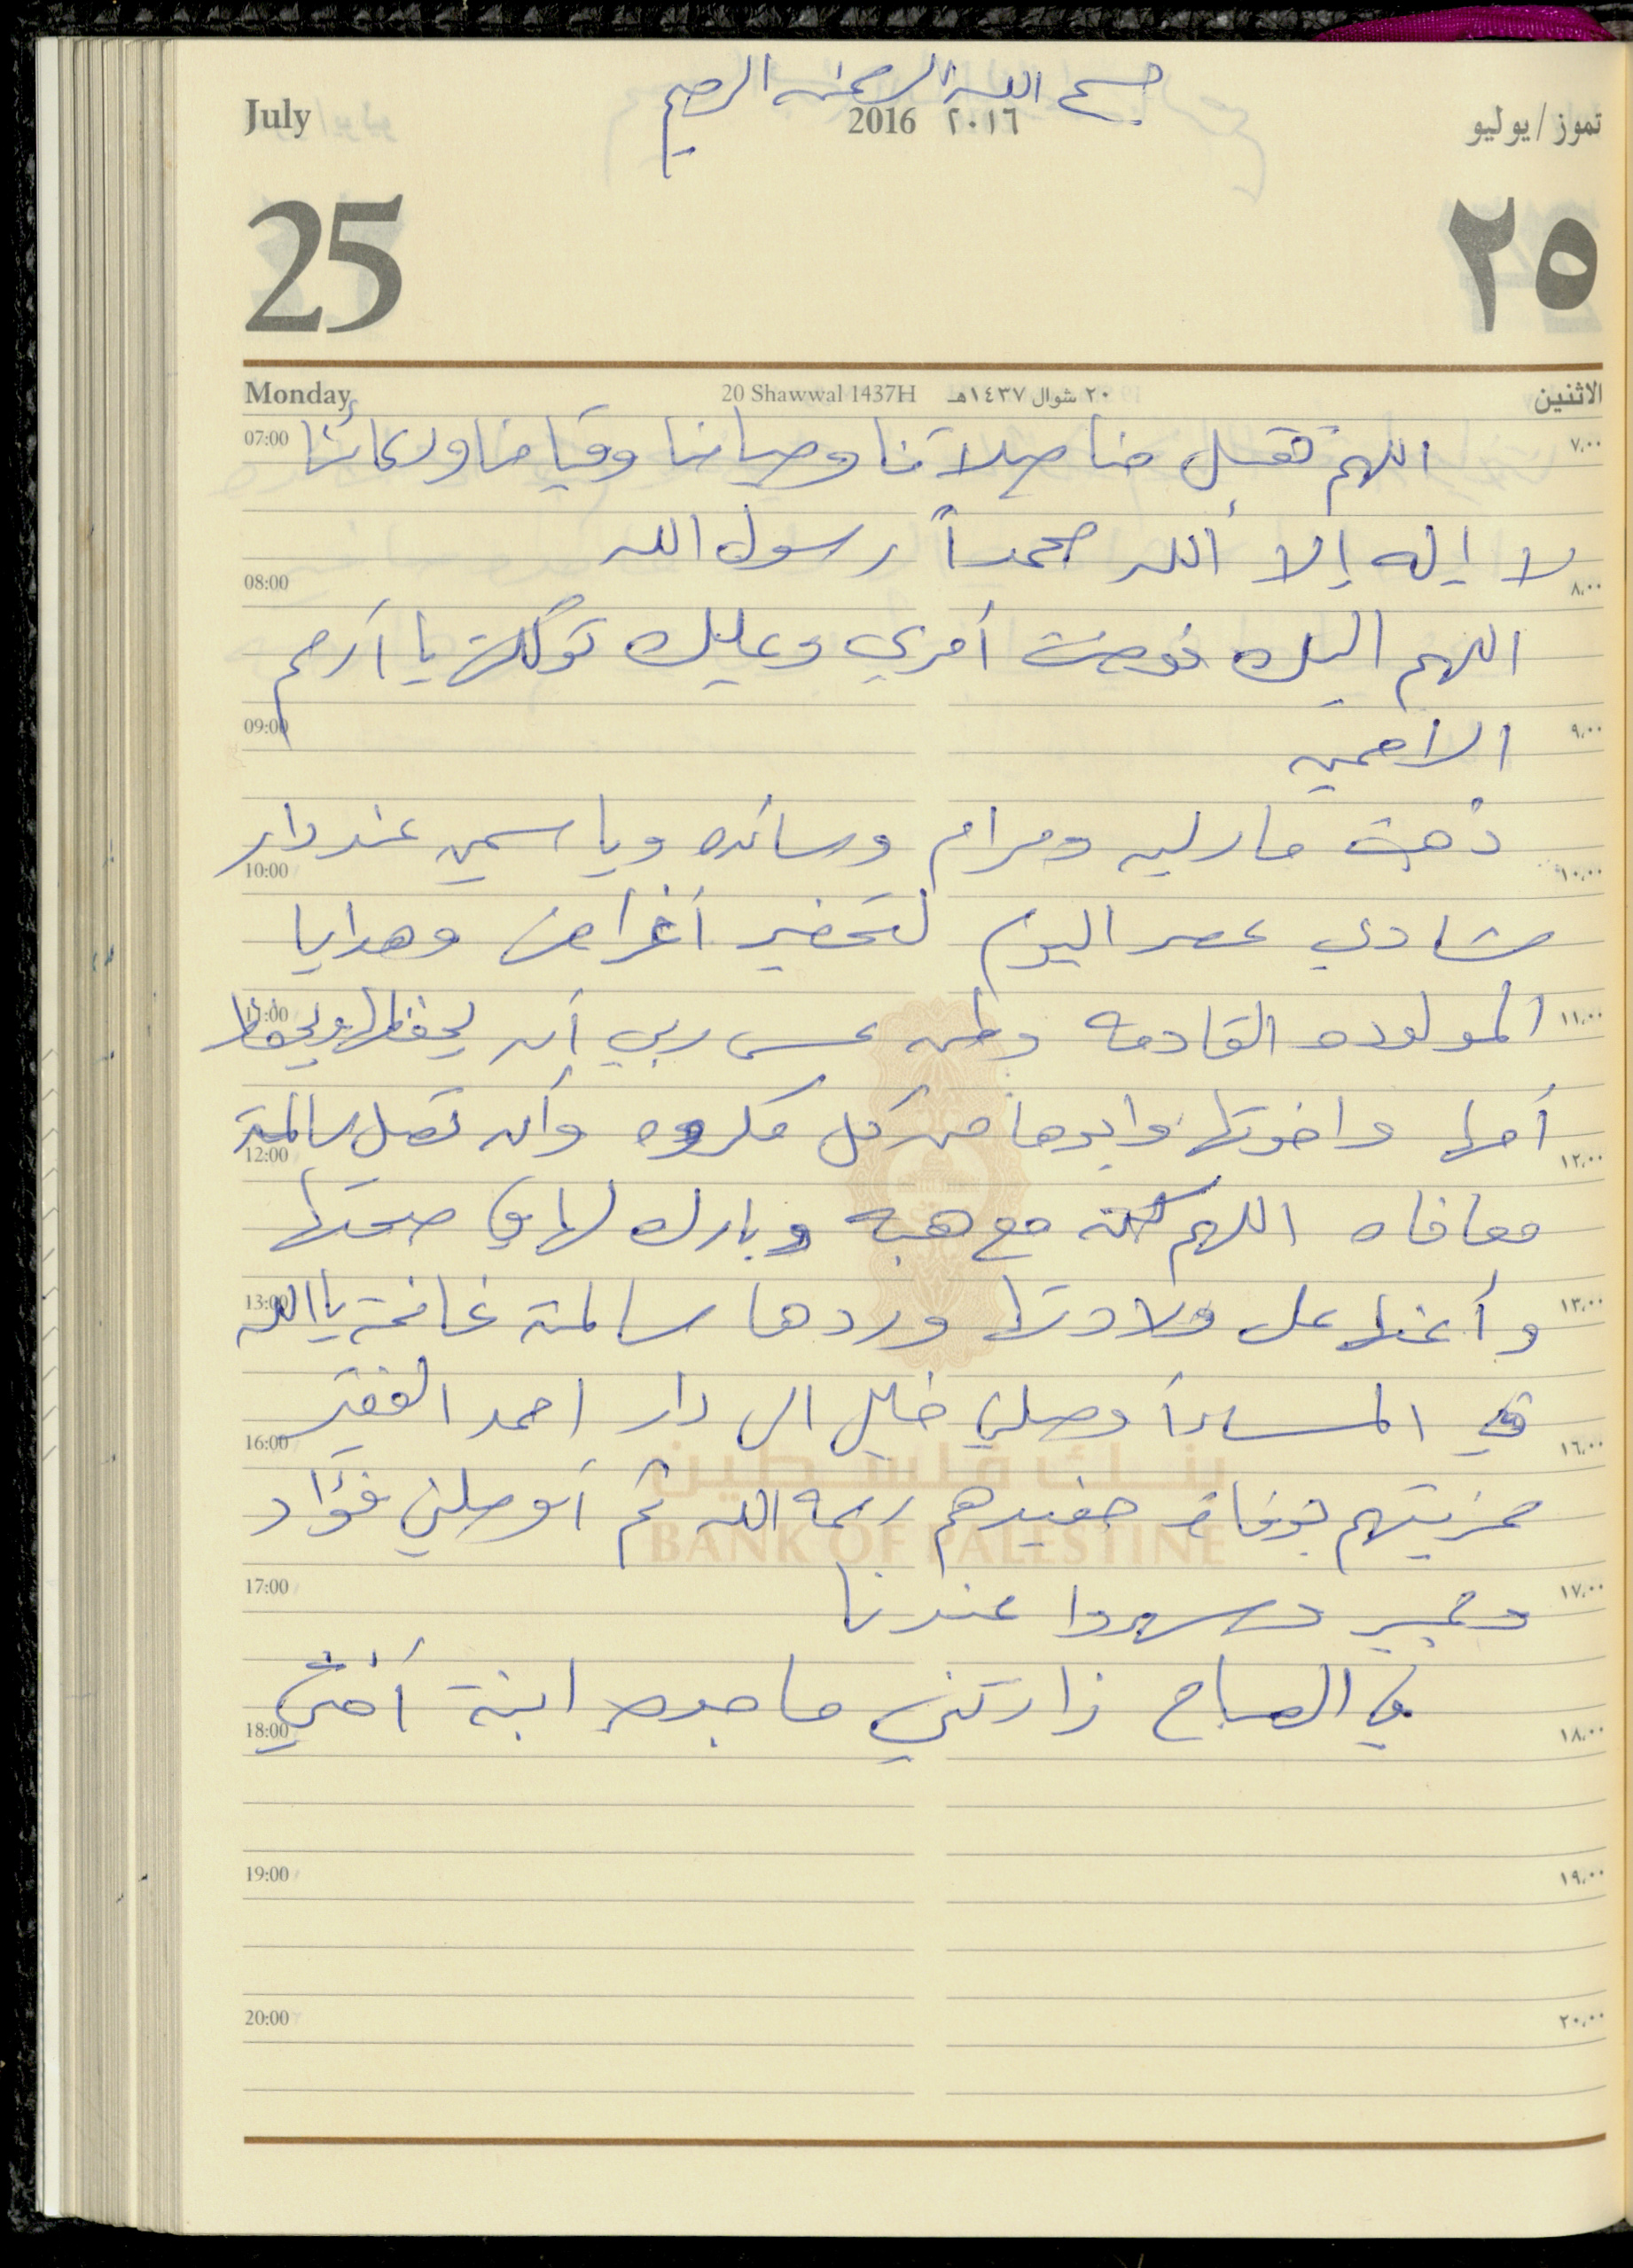 بسم الله الرحمن الرحيم
July 2016 ٢٠١٦ تموز/يوليو
25 ٢٥
Monday 20 Shawwal 1437H ٢٠ شوال ١٤٣٧هـ الاثنين
07:00 ٧,٠٠
اللهم تقبل منا صلاتنا وصيامنا وقيامنا ودعائنا
لا إله إلا الله محمداً رسول الله
08:00 ٨,٠٠
اللهم اليك فوضت أمري وعليك توكلت يا أرحم
09:00 ٩,٠٠
الراحمين
ذهبت مارلين ومرام وسائده وياسمين عند دار
10:00 ١٠,٠٠
شادي عصر اليوم لتحضير أغراض وهدايا
11:00 ١١,٠٠
المولوده القادمه وطن عسى ربي أن يحفظها ويحفظ
أمها واخوتها وابوها من كل مكروه وأن تصل سالمة
12:00 ١٢,٠٠
معافاه اللهم كن مع هبه وبارك لها في صحتها
13:00 ١٣,٠٠
وأعنها على ولادتها وردها سالمة غانمة يا الله
في المساءاً وصلني خليل الى دار احمد الفقير
16:00 ١٦,٠٠
بنك فلسطين
BANK OF PALESTINE
عزيتهم بوفاة حفيدهم رحمه الله ثم أتوصلني فؤاد
17:00 ١٧,٠٠
وعبير وسهروا عندنا
في الصباح زارتني ماجده ابنة أختي
18:00 ١٨,٠٠
19:00 ١٩,٠٠
20:00 ٢٠,٠٠